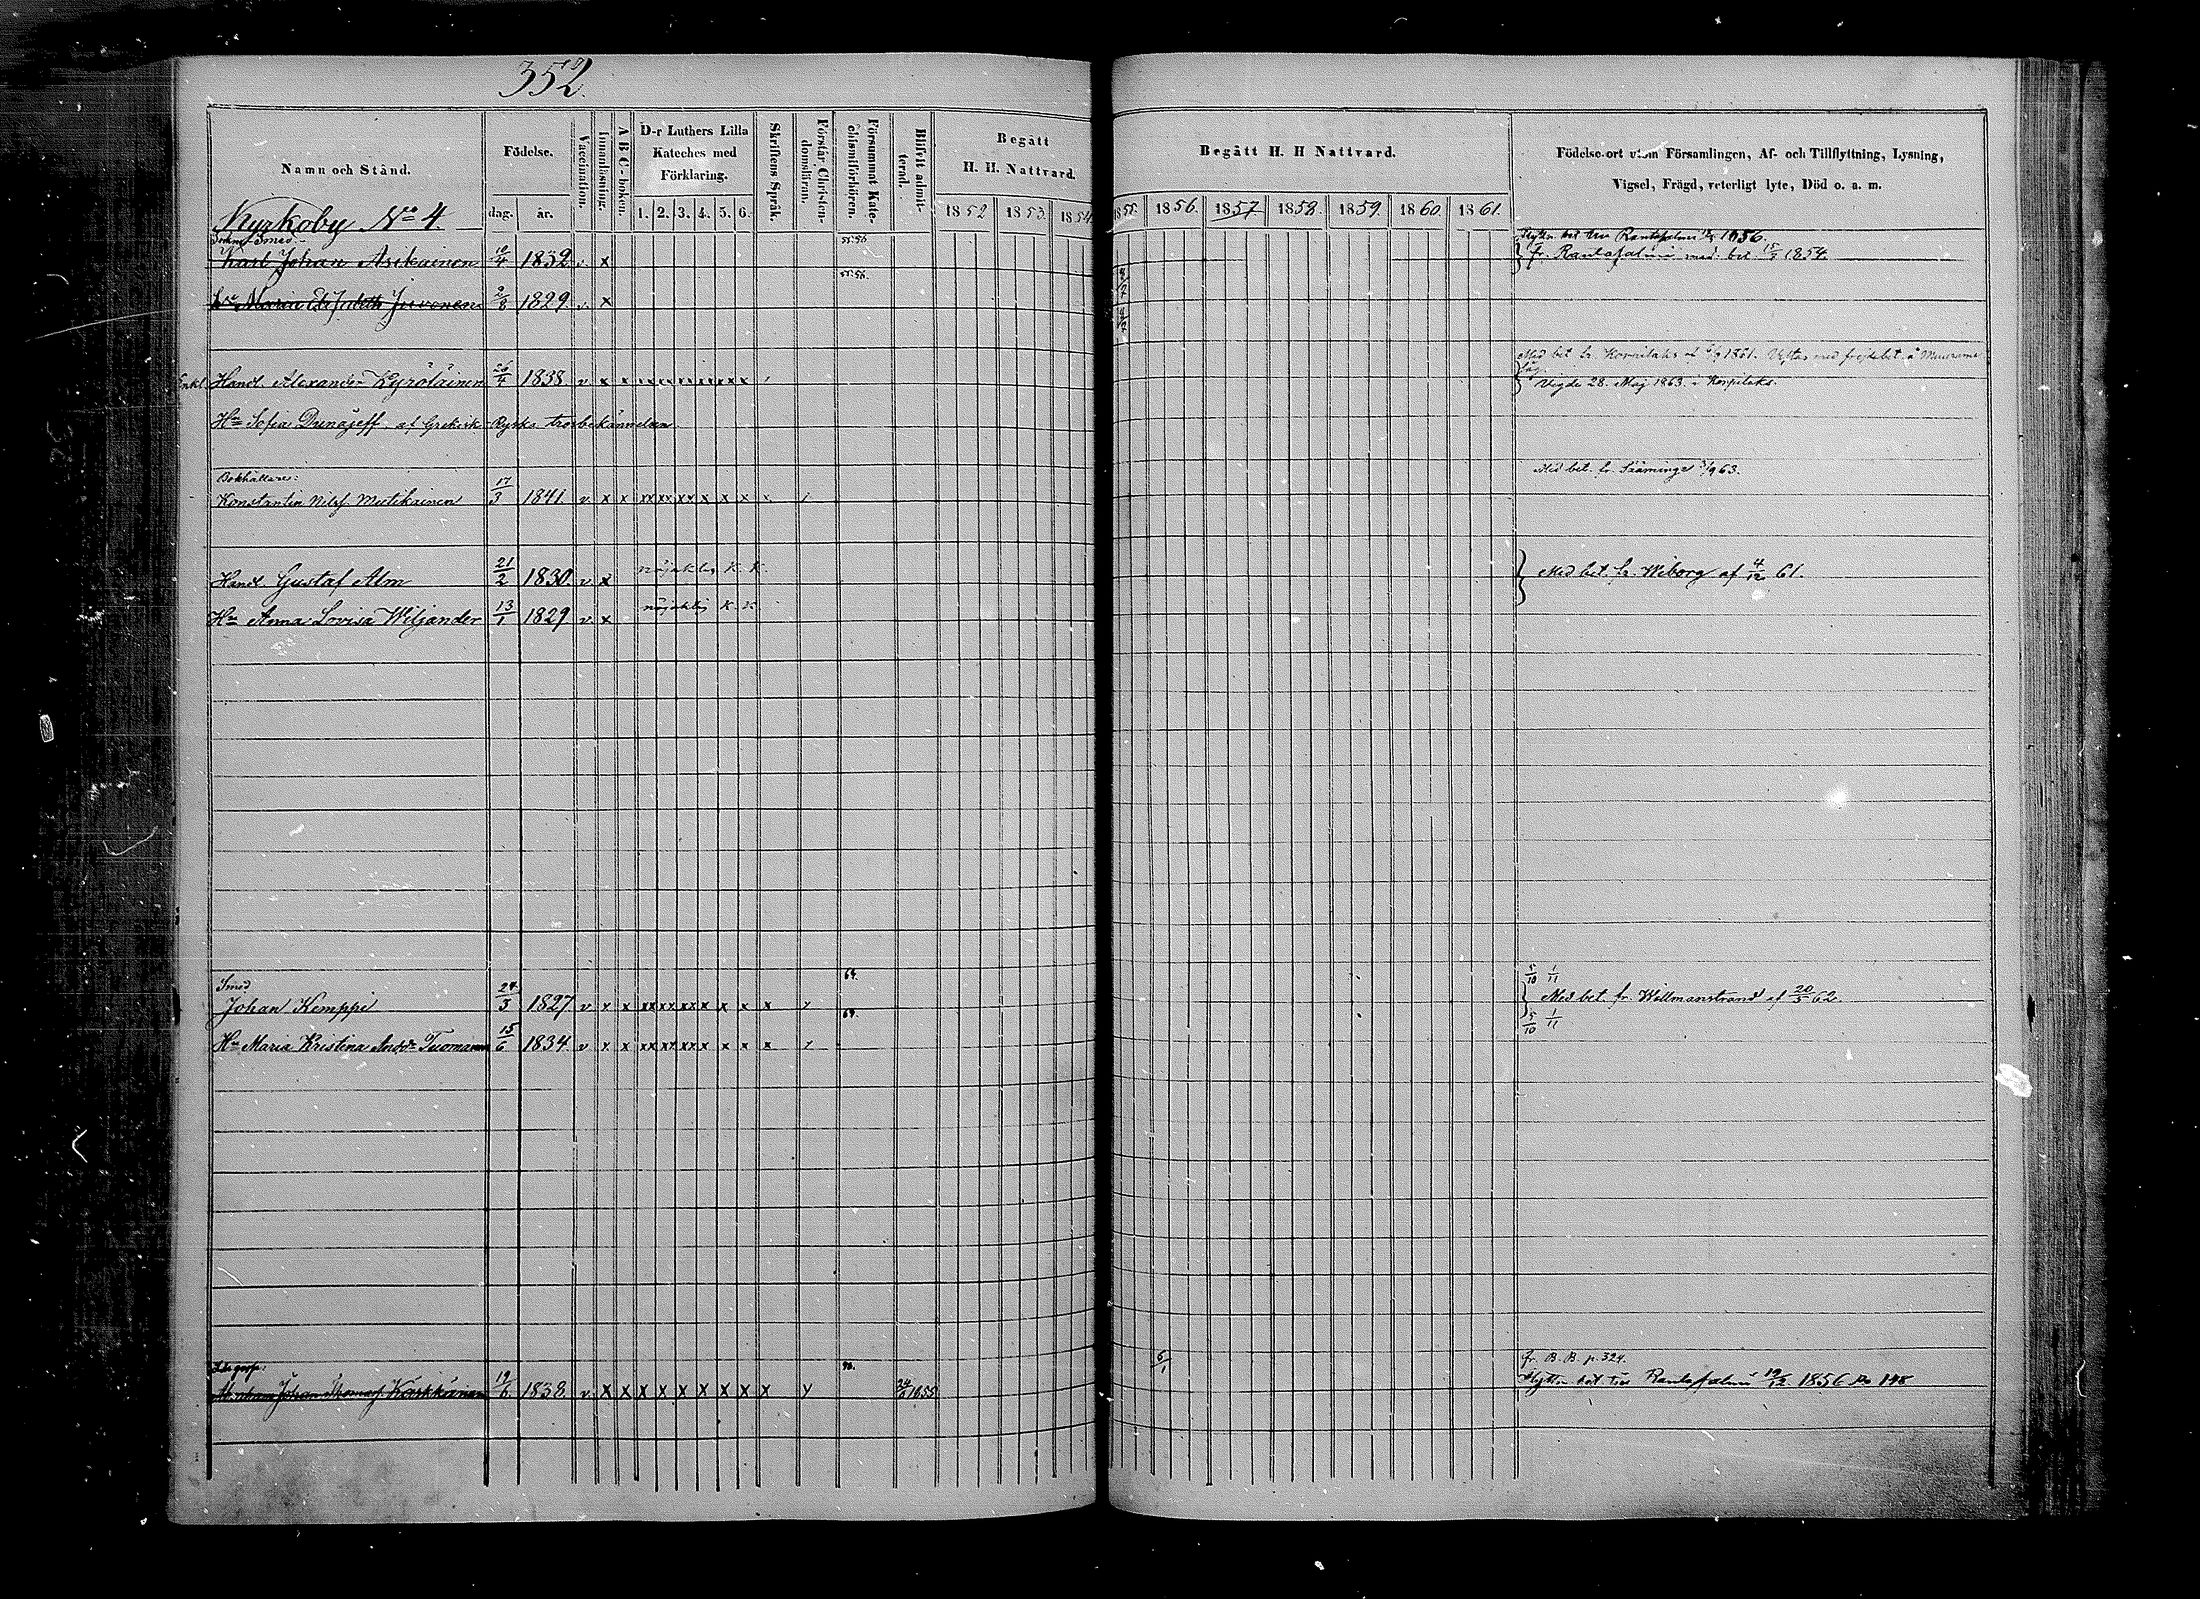 352.
Namn och Stånd.
Födelse.
dag. år.
Vaccination.
Innanläsning.
ABC-boken.
D-r Luthers Lilla
Kateches med
Förklaring.
1. 2. 3. 4. 5. 6.
Skriftens Språk.
Förstår Christen-
domsläran.
Försummat Kate-
chismiförhören.
Blifvit admit-
terad.
Begått
H. H. Nattvard.
1852 1853. 1854
Begått H. H Nattvard.
1855. 1856. 1857. 1858. 1859. 1860. 1861.
Födelse-ort utom Församlingen, Af- och Tillflyttning, Lysning,
Vigsel, Frägd, veterligt lyte, Död o. a. m.
Kyrkoby No 4.
Smed 55.56 1856.
Karl Johan Asikainen 10/4 1832 v x fr. Rantasalmi med bet 1854.
55.56.
Maria Elisabeth Juvonen 2/8 1829 v x
Med bet fr. Korpilaks 1861.
Handl. Alexander Kyröläinen 26/4 1838 v x x Vigde 28. Maj 1863. i Korpilaks.
Hu Sofia Dunajeff af Grekisk Ryska trosbekännelsen
Bokhållare: Med bet. fr. Sääminge 63.
Konstantin 17/3 1841 v x x xx xx xx x x x x
Handl Gustaf Alm 21/2 1830 v x nöjaktig K. K. Med bet. fr. Wiborg af 4/12 61.
Hu Anna Lovisa Wiljander 13/1 1829 v x nöjaktig K. K.
Smed 64. 5/10 1/11
Johan Kemppi 24/3 1827 v x x xx xx xx x x x x y Med bet. fr. Willmanstrand af 20/5 62.
64. 5/10 1/11
Hu Maria Kristina Andsdr Tuomanen 15/6 1834 v x x xx xx xx x x x x y
fr. B. B. p. 324.
Abraham Johan Thomasf Karkkainen 19/6 1838 v X X X X X X X X X y 1855 6/1 Flyttn bet till Rantasalmi 19/12 1856 No 148